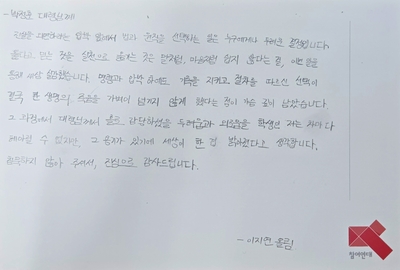 -박정훈 대령님께
조직을 대변하는 압박 앞에서 법과 원칙을 선택하는 일은 누구에게나 두려운 결정입니다.
옳다고 믿는 것을 실천으로 옮기는 것은 말처럼, 마음처럼 쉽지 않다는 걸, 이번 일을
통해 다시 실감했습니다. 명령과 압박 속에도 기록을 지키고 절차를 따르신 선택이
결국 한 생명의 죽음을 가벼이 넘기지 않게 했다는 점이 가슴 깊이 남았습니다.
그 과정에서 대령님께서 홀로 감당하셨을 두려움과 외로움을 학생인 저는 차마 다
헤아릴 수 없지만, 그 용기가 있기에 세상이 한 걸 밝아졌다고 생각합니다.
침묵하지 않아 주셔서, 진심으로 감사드립니다.
- 이지연 올림
참여연대